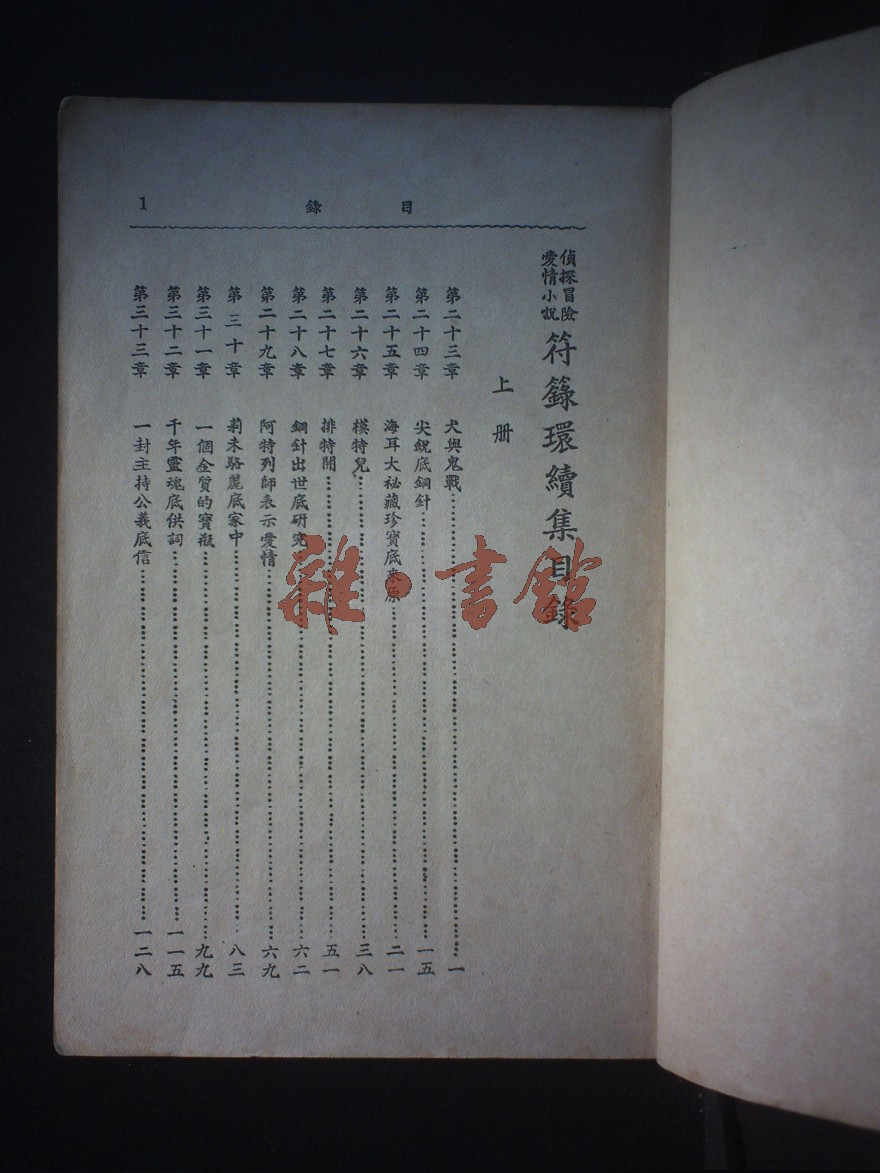 目錄 1
偵探冒險
愛情小說
符籙環續集目錄
上册
第二十三章 犬與鬼戰 一
第二十四章 尖銳底鋼針 一五
第二十五章 海耳大祕藏珍寶底來原 二一
第二十六章 模特兒 三八
第二十七章 排特開 五一
第二十八章 鋼針出世底研究 六二
第二十九章 阿特列師表示愛情 六九
第三十章 莉未駱麗底家中 八三
第三十一章 一個金質的寶瓶 九九
第三十二章 千年靈魂底供詞 一一五
第三十三章 一封主持公義底信 一二八
雜·書館